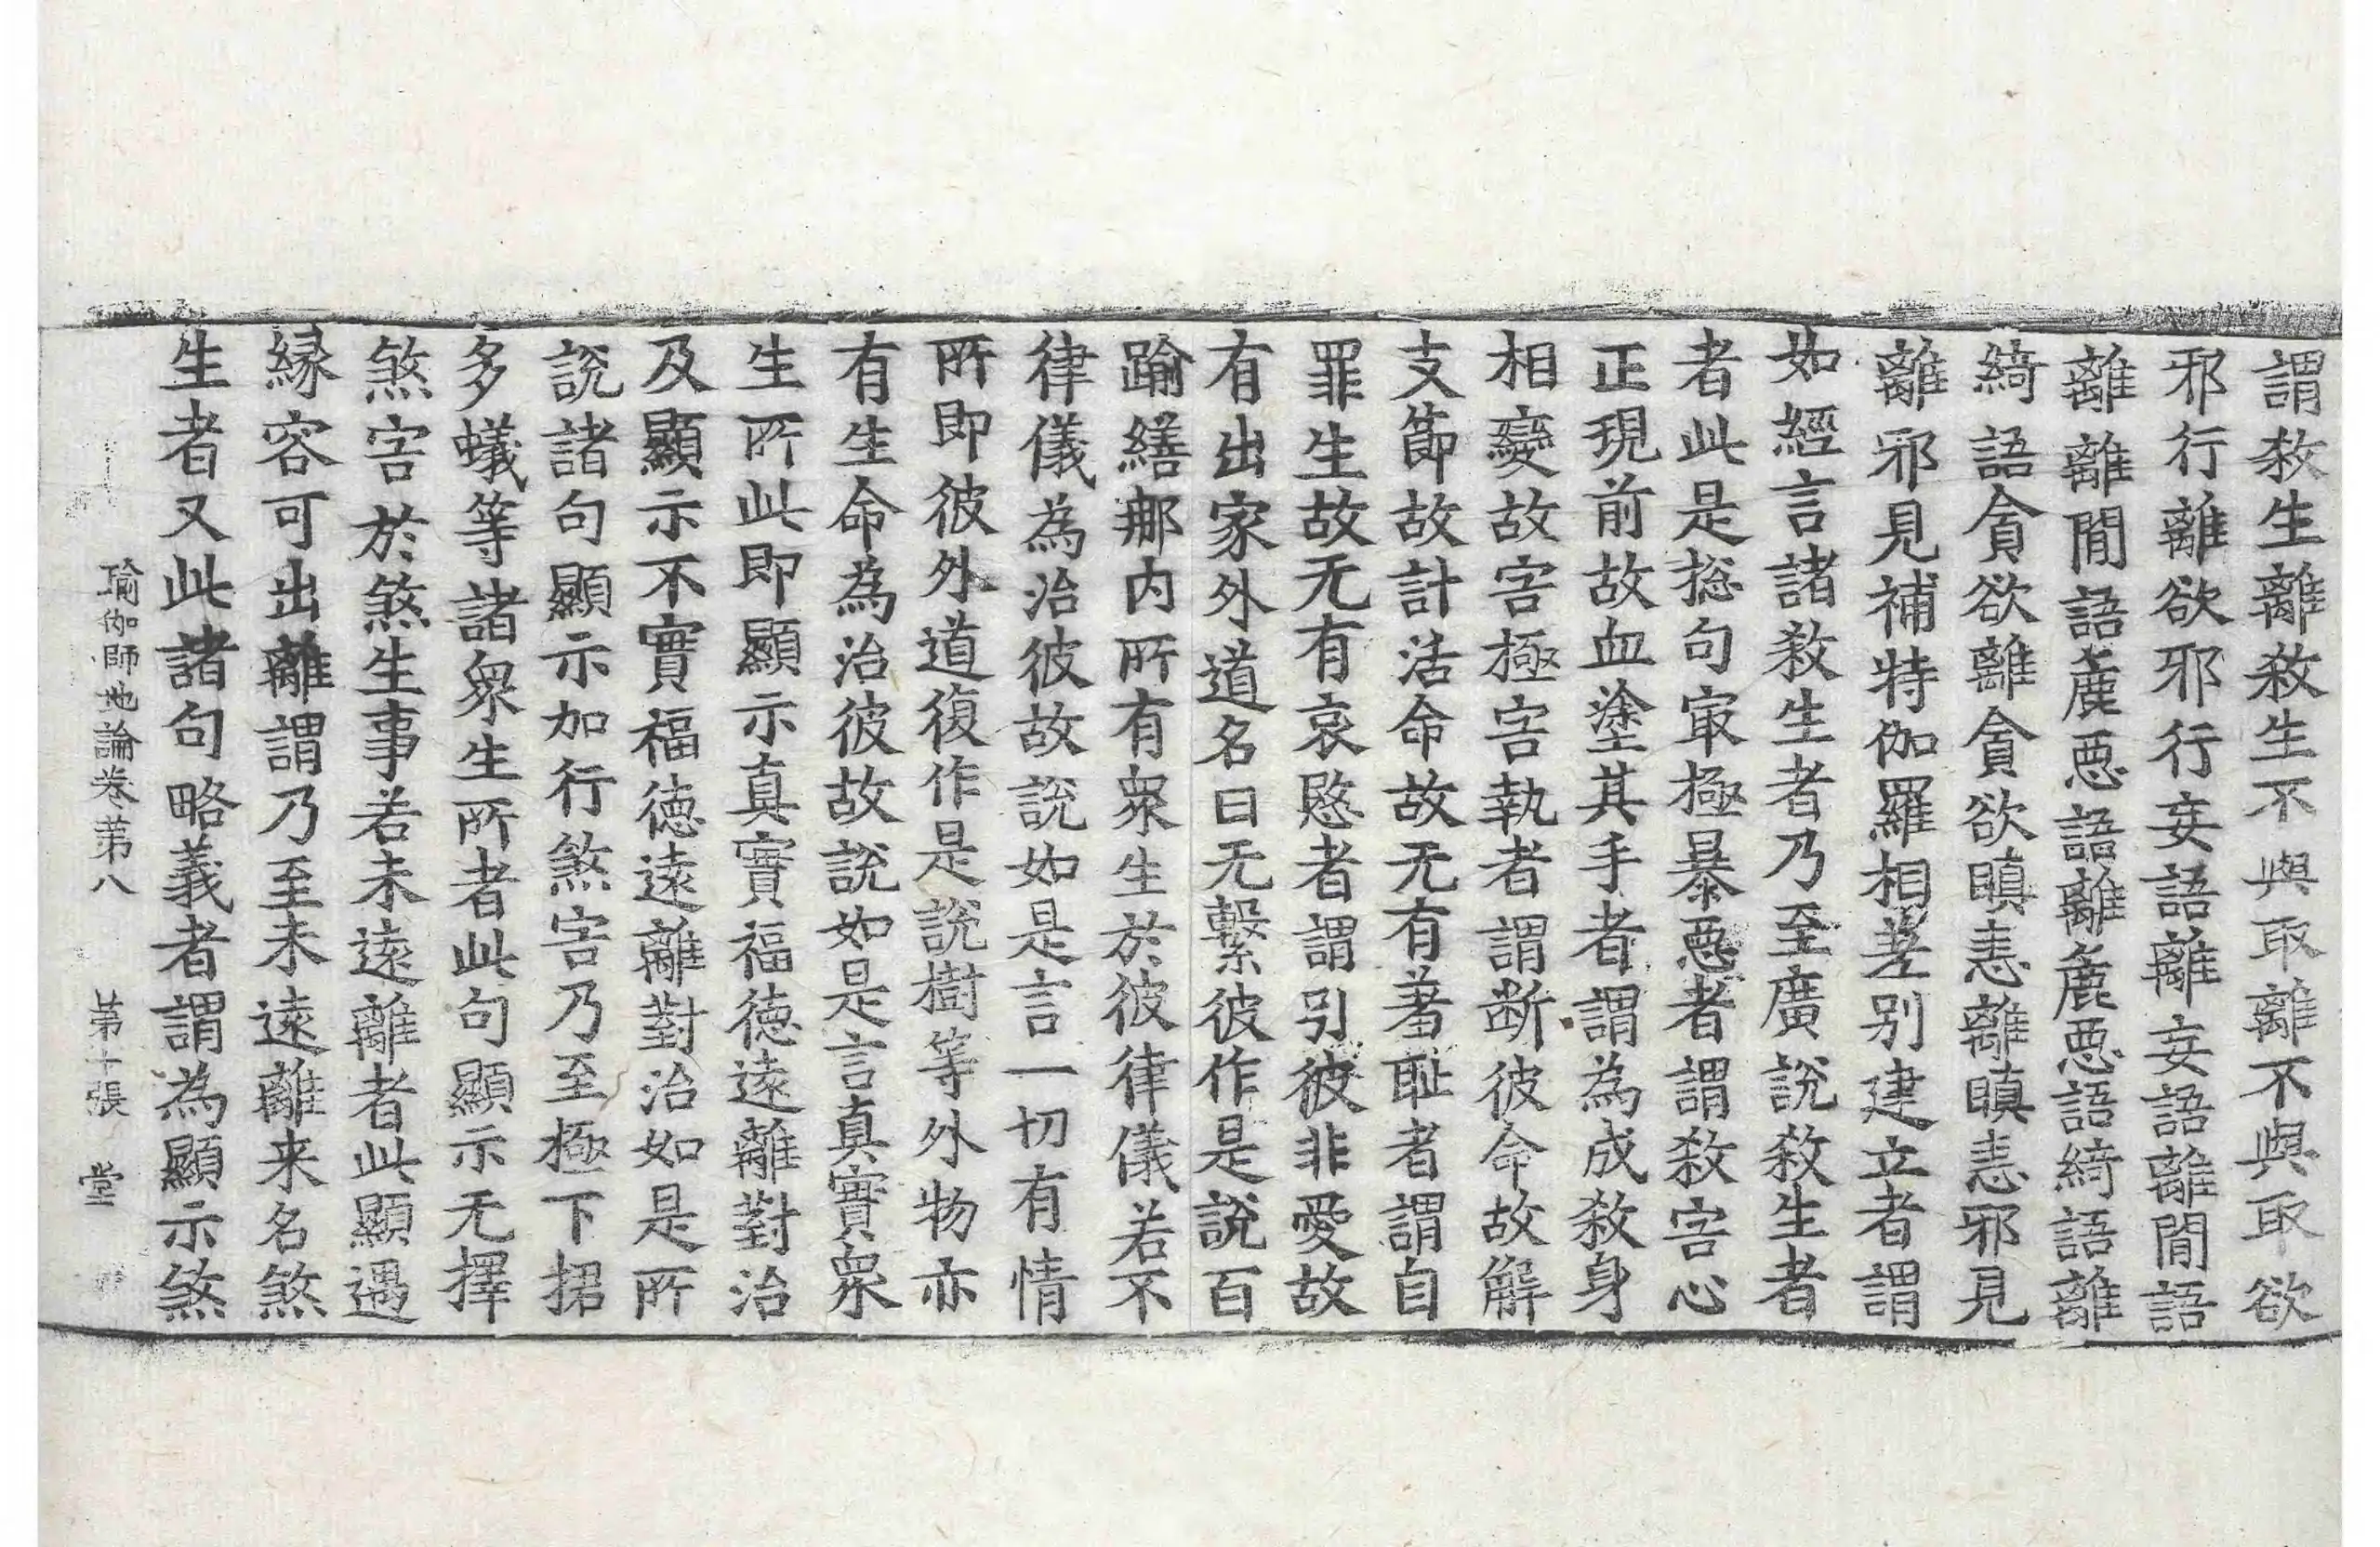 謂敎生離敎生不與取離不與取欲
邪行離欲邪行妄語離妄語離間語
離離間語麁惡語離麁惡語綺語離
綺語貪欲離貪欲瞋恚離瞋恚邪見
離邪見補特伽羅相差别建立者謂
如經言諸敎生者乃至廣說敎生者
者此是捴句㝡極暴惡者謂敎害心
正現前故血塗其手者謂為成敎身
相變故害極害執者謂断彼命故解
支節故計活命故无有羞恥者謂自
罪生故无有哀愍者謂引彼非愛故
有出家外道名曰无繫彼作是說百
踰繕那内所有衆生於彼律儀若不
律儀為治彼故說如是言一切有情
所即彼外道復作是說樹等外物亦
有生命為治彼故說如是言真實衆
生所此即顯示真實福徳遠離對治
及顯示不實福徳遠離對治如是所
說諸句顯示加行煞害乃至極下捃
多蟻等諸衆生所者此句顯示无擇
煞害於煞生事若未遠離者此顯遇
縁容可出離謂乃至未遠離来名煞
生者又此諸句略義者謂為顯示煞
瑜伽師地論卷第八 第十張 堂